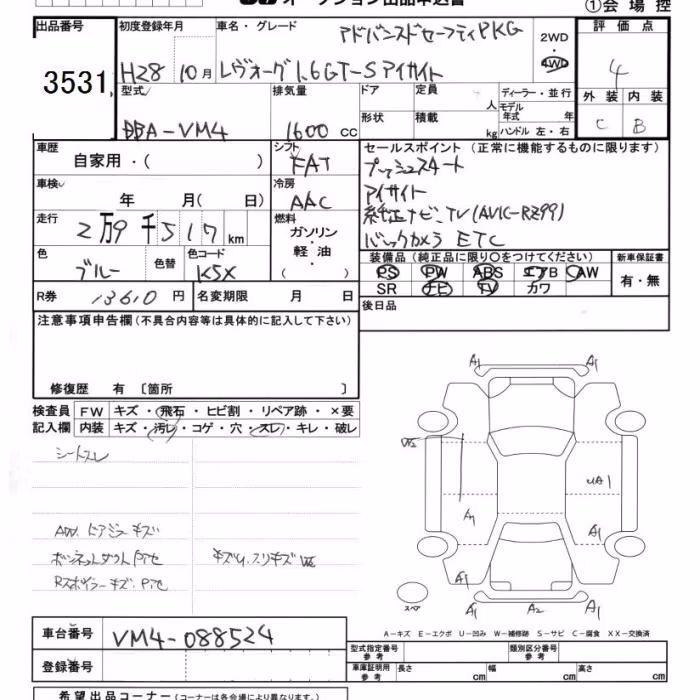 オークション出品申込書
①会場控
出品番号
3531
初度登録年月
H28 10月
車名・グレード
アドバンスドセーフティPKG
レヴォーグ 1.6GT-Sアイサイト
2WD
4WD
評価点
4
外装 内装
C B
型式
DBA-VM4
排気量
1600 cc
ドア 定員 人
形状 積載 kg
ディーラー・並行
モデル年式 年
ハンドル 左・右
車歴
自家用・( )
シフト
FAT
車検
年 月( 日)
冷房
AAC
走行
2万9千517km
燃料
ガソリン・軽油・( )
色
ブルー
色替
色コード
K5X
R券 13610円
名変期限 月 日
セールスポイント(正常に機能するものに限ります)
プッシュスタート
アイサイト
純正ナビ、TV(AVIC-RZ99)
バックカメラ ETC
装備品(純正品に限り○をつけてください)
PS PW ABS エアB AW
SR ナビ TV カワ
新車保証書
有・無
後日品
注意事項申告欄(不具合内容等は具体的に記入して下さい)
修復歴 有〔箇所 〕
検査員記入欄
FW キズ・飛石・ヒビ割・リペア跡・×要
内装 キズ・汚レ・コゲ・穴・スレ・キレ・破レ
シートスレ
AW. ドアミラーキズ
ボンネットダクトハゲ
キズ少、スリキズ
Rスポイラーキズ.ハゲ
A1 A1
UA1
A1
A1
A1
A1 A2 A1
スペア
A-キズ E-エクボ U-凹み W-補修跡 S-サビ C-腐食 XX-交換済
車台番号 VM4-088524
登録番号
型式指定番号 参考
類別区分番号 参考
車庫証明用 参考 長さ cm 幅 cm 高さ cm
希望出品コーナー(コーナーは各会場により異なります。)